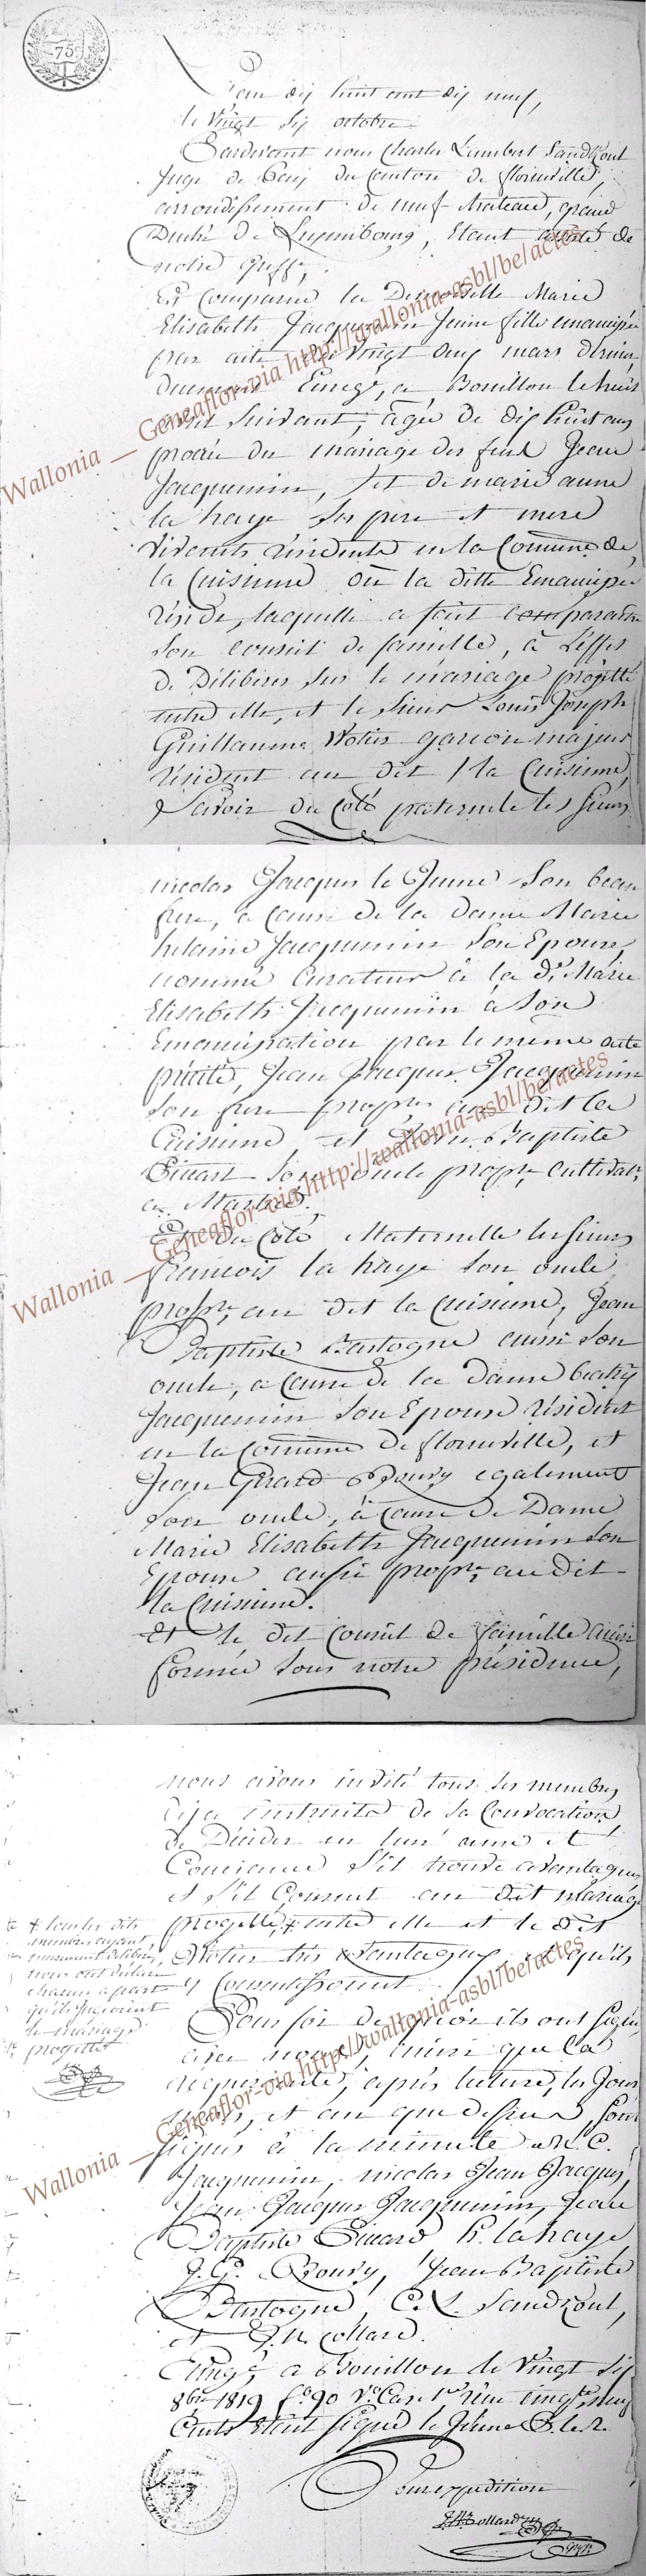 75
L'an dix huit cent dix neuf,
le vingt six octobre.
Pardevant nous Charles Lambert Sandkoul
Juge de Paix du Canton de florenville,
arrondissement de neuf-chateau, grand
Duché de Luxembourg, Etant assisté de
notre greffr,
Est Comparue la Demoiselle Marie
Elisabeth Jacquemin Jeune fille emancipée
par acte du vingt deux mars dernier,
duement Enregé, a Bouillon le huit
suivant, agée de dix huit ans
procrée du mariage des feus Jean
Jacquemin, et de marie anne
la haye ses pere et mere
vivants residents en la Comune de
la Cuisinne où la ditte Emancipée
réside, laquelle a fait comparaitre
son conseil de famille, à l'effet
de Délibérer sur le mariage projetté
entre elle, et le Sieur Louis Joseph
Guillaume Notin garcon majeur
résident au dit la Cuisinne,
Savoir du Coté paternele les Sieurs
nicolas Jacques le Jeune son beau
frere, a Cause de la dame Marie
helaine Jacquemin son Epouse,
nommé curateur à la dle Marie
Elisabeth Jacquemin à son
Emancipation par le meme acte
précité, Jean Jacques Jacquemin
son frere propre au dit la
Cuisinne et Jean Baptiste
son oncle propre, cultivatr
a
Et du Coté Maternelle les Sieurs
francois la haye son oncle
propre, au dit la Cuisinne, Jean
Baptiste Bastogne aussi son
oncle, a Cause de la dame
Jacquemin son Epouse résident
en la Commune de florenville, et
Jean Gerard Roury egalement
son oncle, à Cause de Dame
Marie Elisabeth Jacquemin son
Epouse aussi propre, au dit
la Cuisinne.
Et le dit Conseil de famille ainsi
formée sous notre présidence,
nous avons invité tous ses membres
deja instruits de sa Convocation
de Décider en leur ame et
Concience s'il trouve avantageux
et s'il Consent au dit mariage
projetté, + entre elle et le dit
Notin très avantageux, et qu'ils
y Consentissoient.
+ lesquels dits
membres ayant
murement délibéré,
nous ont déclaré
chacun a part
qu'ils jugeoient
le mariage
projetté
Pour foi de quoi ils ont signé
avec nous, ainsi que la
requerante, après lecture, les Jour
mois, et an que dessus, sont
signés à la minute M. E.
Jacquemin, nicolas Jean Jacques,
Jean Jacques Jacquemin, Jean
Baptiste h. lahaye
J. G. Roury, Jean Baptiste
Bastogne, C. L. Sandkoul,
et J. N. Collard.
Enregé a Bouillon le vingt six
8bre 1819 fo 90 Vo Case 1re reçu vingt neuf
Cents Etoit signé le Jeune
Pour expedition
J.N. Collard
Wallonia — Geneaflor-via http://wallonia-asbl/be/actes
Wallonia — Geneaflor-via http://wallonia-asbl/be/actes
Wallonia — Geneaflor-via http://wallonia-asbl/be/actes